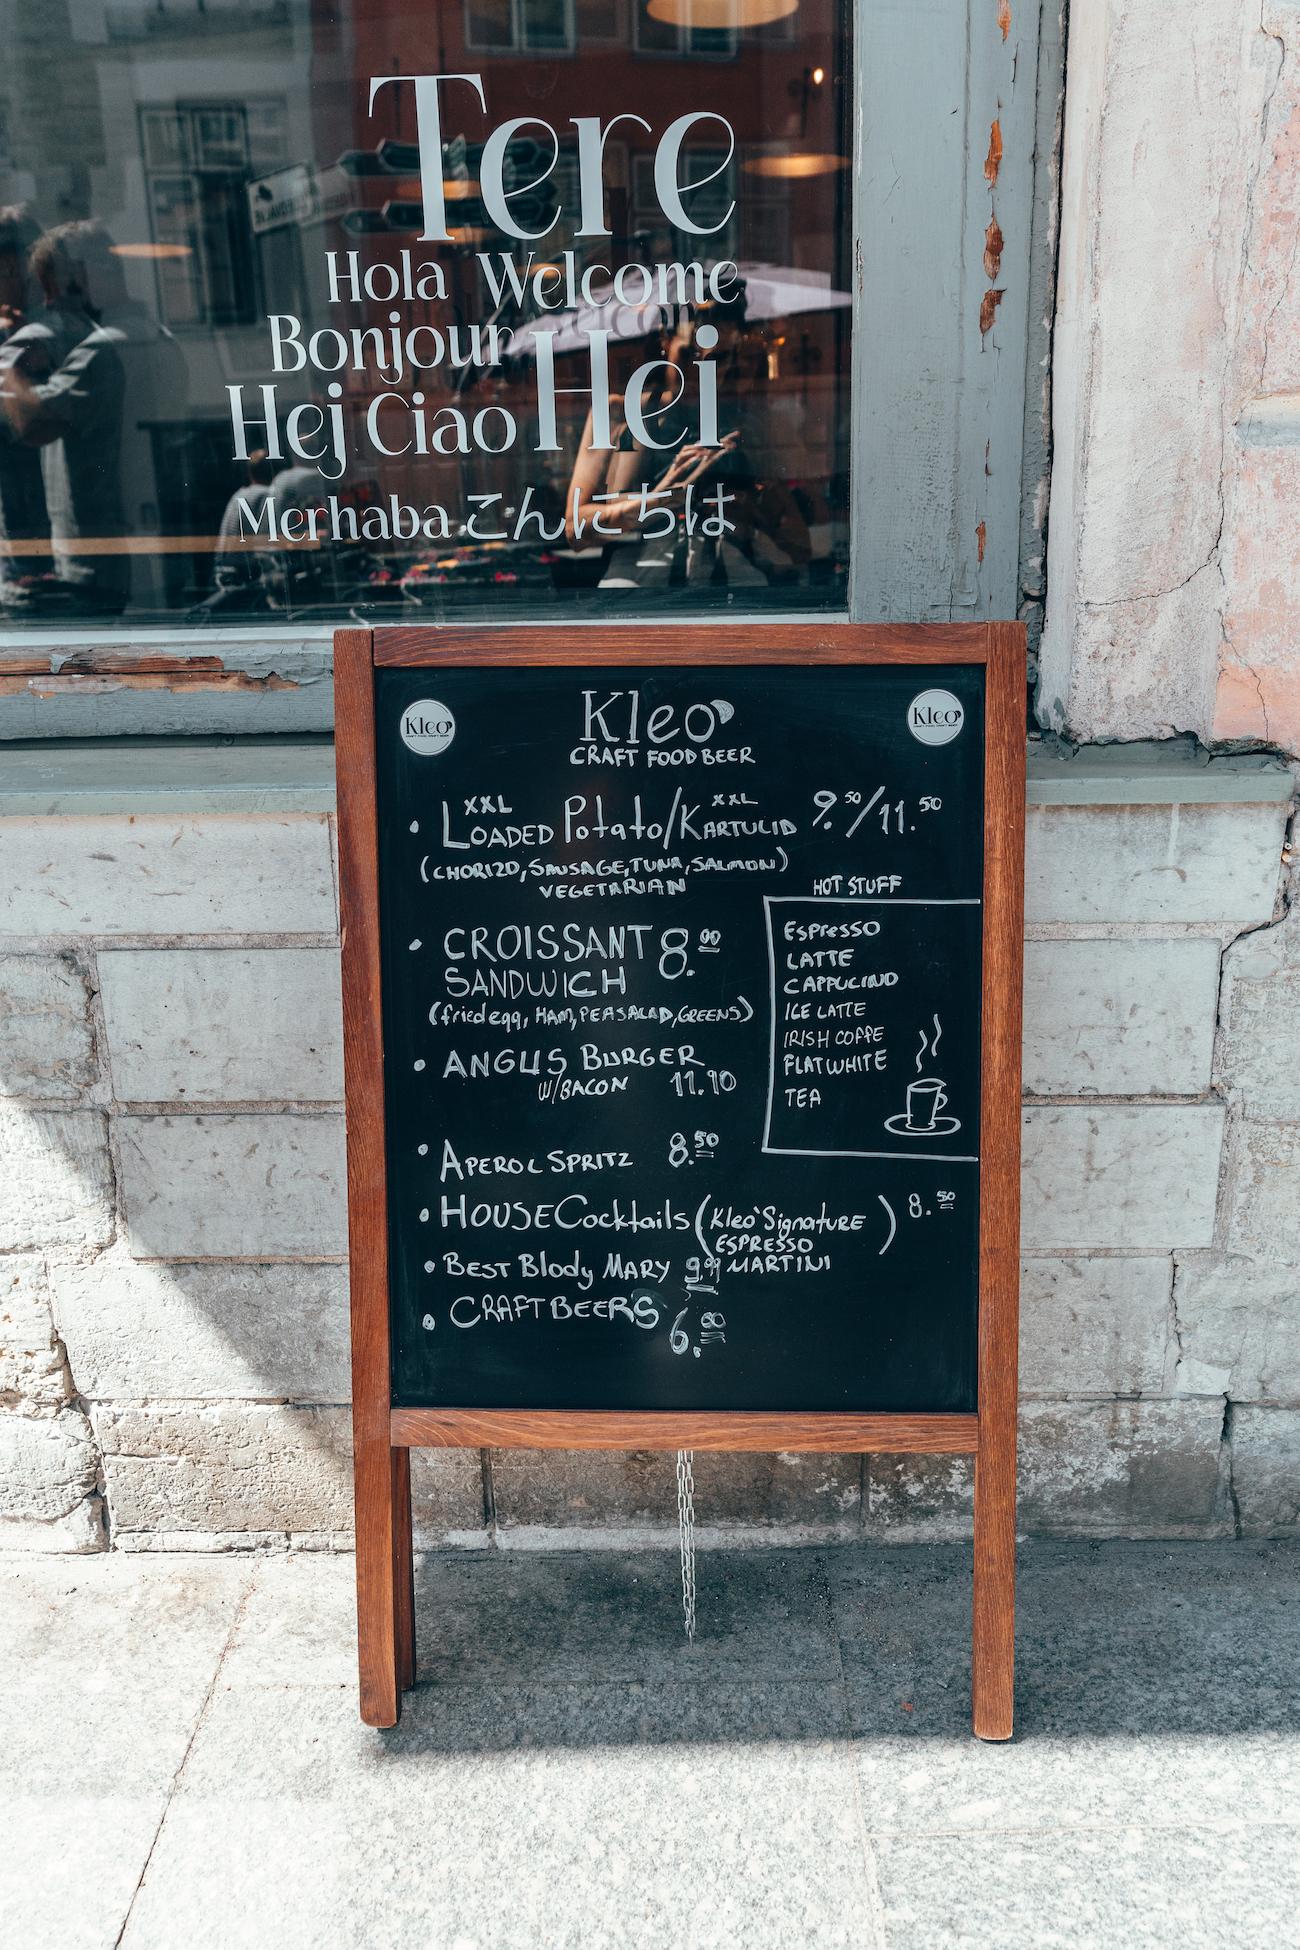 Tere
Hola Welcome
Bonjour Hei
Hej Ciao
Merhaba こんにちは
Kleo
Kleo
Kleo
CRAFT FOOD BEER
XXL XXL
• LOADED Potato/KARTULID 9.50/11.50
(CHORIZO, SAUSAGE, TUNA, SALMON)
VEGETARIAN
• CROISSANT 8.00
SANDWICH
(fried egg, HAM, PEASALAD, GREENS)
• ANGUS BURGER
W/BACON 11.90
HOT STUFF
ESPRESSO
LATTE
CAPPUCINO
ICE LATTE
IRISH COFFE
FLATWHITE
TEA
• APEROL SPRITZ 8.50
• HOUSE Cocktails (Kleo`SignatURE) 8.50
ESPRESSO
MARTINI
• BEST Blody MARY 9.99
• CRAFT BEERS 6.80